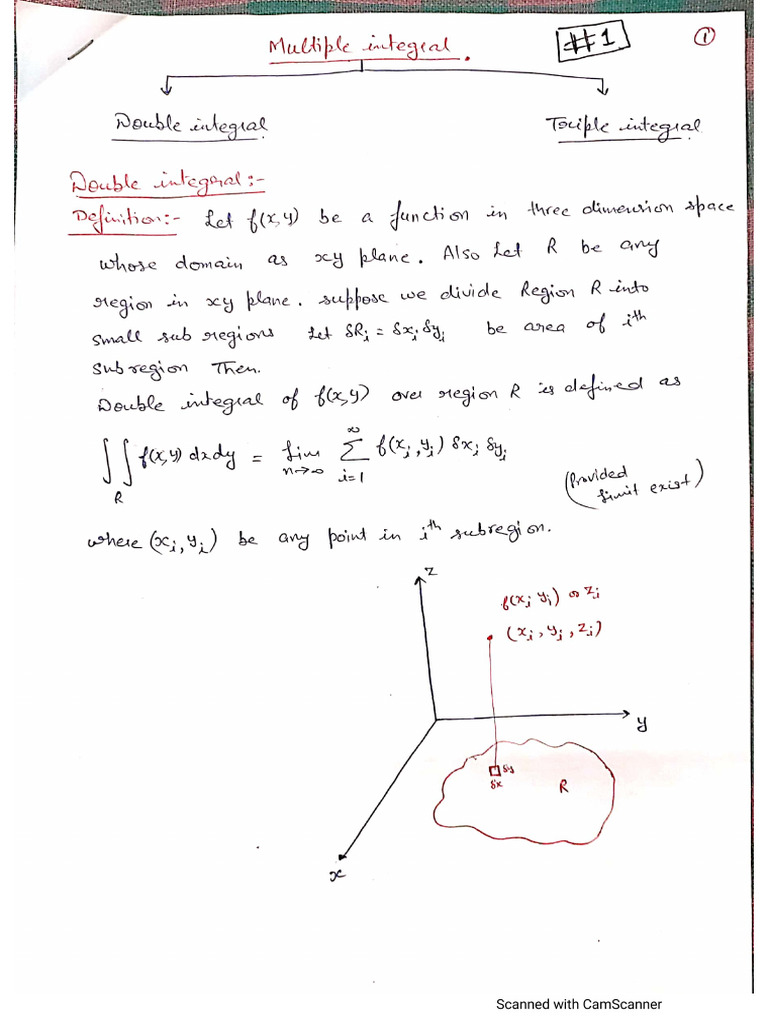 Multiple integral.
#1
①
Double integral
Triple integral
Double integral:-
Definition:- Let f(x,y) be a function in three dimension space
whose domain as xy plane. Also Let R be any
region in xy plane. suppose we divide Region R into
small sub regions Let δRᵢ = δxᵢ δyᵢ be area of iᵗʰ
subregion Then.
Double integral of f(x,y) over region R is defined as
∬_R f(x,y) dxdy = lim_{n→∞} ∑_{i=1}^{∞} f(xᵢ, yᵢ) δxᵢ δyᵢ
(Provided
limit exist)
where (xᵢ, yᵢ) be any point in iᵗʰ subregion.
z
f(xᵢ yᵢ) or zᵢ
(xᵢ, yᵢ, zᵢ)
y
δy
δx
R
x
Scanned with CamScanner